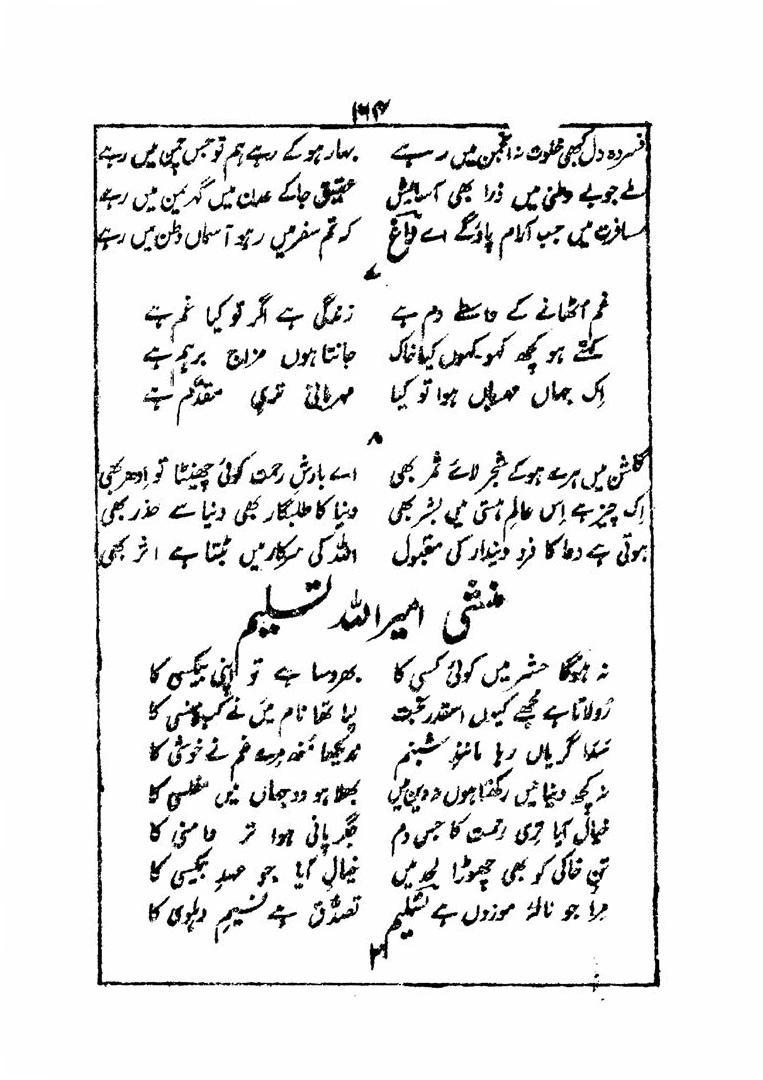 ۱۶۴
فسردہ دل کبھی خلوت نہ انجمن میں رہے بہار ہوکے رہے ہم تو جس چمن میں رہے
ملے جو بے وطنی میں ذرا بھی آسایش عقیق جاکے عدن میں گہر یمن میں رہے
مسافرت میں جب آرام پاؤگے اے داغ کہ تم سفر میں رہو آسماں وطن میں رہے
۷
غم اٹھانے کے واسطے دم ہے زندگی ہے اگر تو کیا غم ہے
کہتے ہو کچھ کہو کہوں کیا خاک جانتا ہوں مزاج برہم ہے
اک جہاں مہرباں ہوا تو کیا مہربانی تری مقدّم ہے
۸
گلشن میں ہرے ہوکے شجر لائے ثمر بھی اے بارشِ رحمت کوئی چھینٹا تو اِدھر بھی
اک چیز ہے اِس عالمِ ہستی میں بشر بھی دنیا کا طلبگار بھی دنیا سے حذر بھی
ہوتی ہے دعا کافر و دیندار کی مقبول اللہ کی سرکار میں بٹتا ہے اثر بھی
منشی امیر اللہ تسلیم
نہ ہوگا حشر میں کوئی کسی کا بھروسا ہے تو اپنی بیکسی کا
رُولاتا ہے مجھے کیوں اسقدر محبت لیا تھا نام میں نے کب ہنسی کا
سدا گریاں رہا مانندِ شبنم نہ دیکھا منھ مرے غم نے خوشی کا
نہ کچھ دنیا میں رکھتا ہوں نہ دین میں بھلا ہو دوجہاں میں مفلسی کا
خیال آیا تری رحمت کا جس دم جگر پانی ہوا تر دامنی کا
تنِ خاکی کو بھی چھوڑا لحد میں خیال آیا جو عہدِ بیکسی کا
مرا جو نالۂ موزوں ہے تسلیم تصدّق ہے نسیمِ دہلوی کا
۲